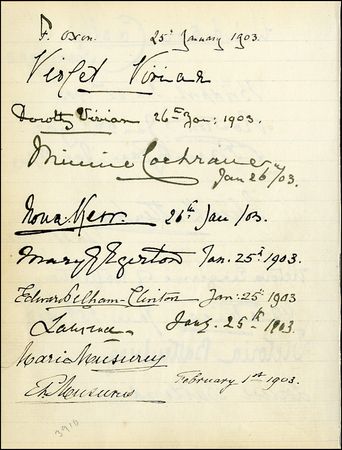 F. Oxon. 25th January 1903.
Violet Vivian
Dorothy Vivian 26th Jan: 1903.
Minnie Cochrane
Jan 26/03.
Nona Kerr. 26th Jan /03.
Mary G Egerton Jan. 25th 1903.
Edward Pelham-Clinton Jan: 25th 1903
Jany. 25th 1903.
Marie Musurus
Musurus February 1st 1903.
3910